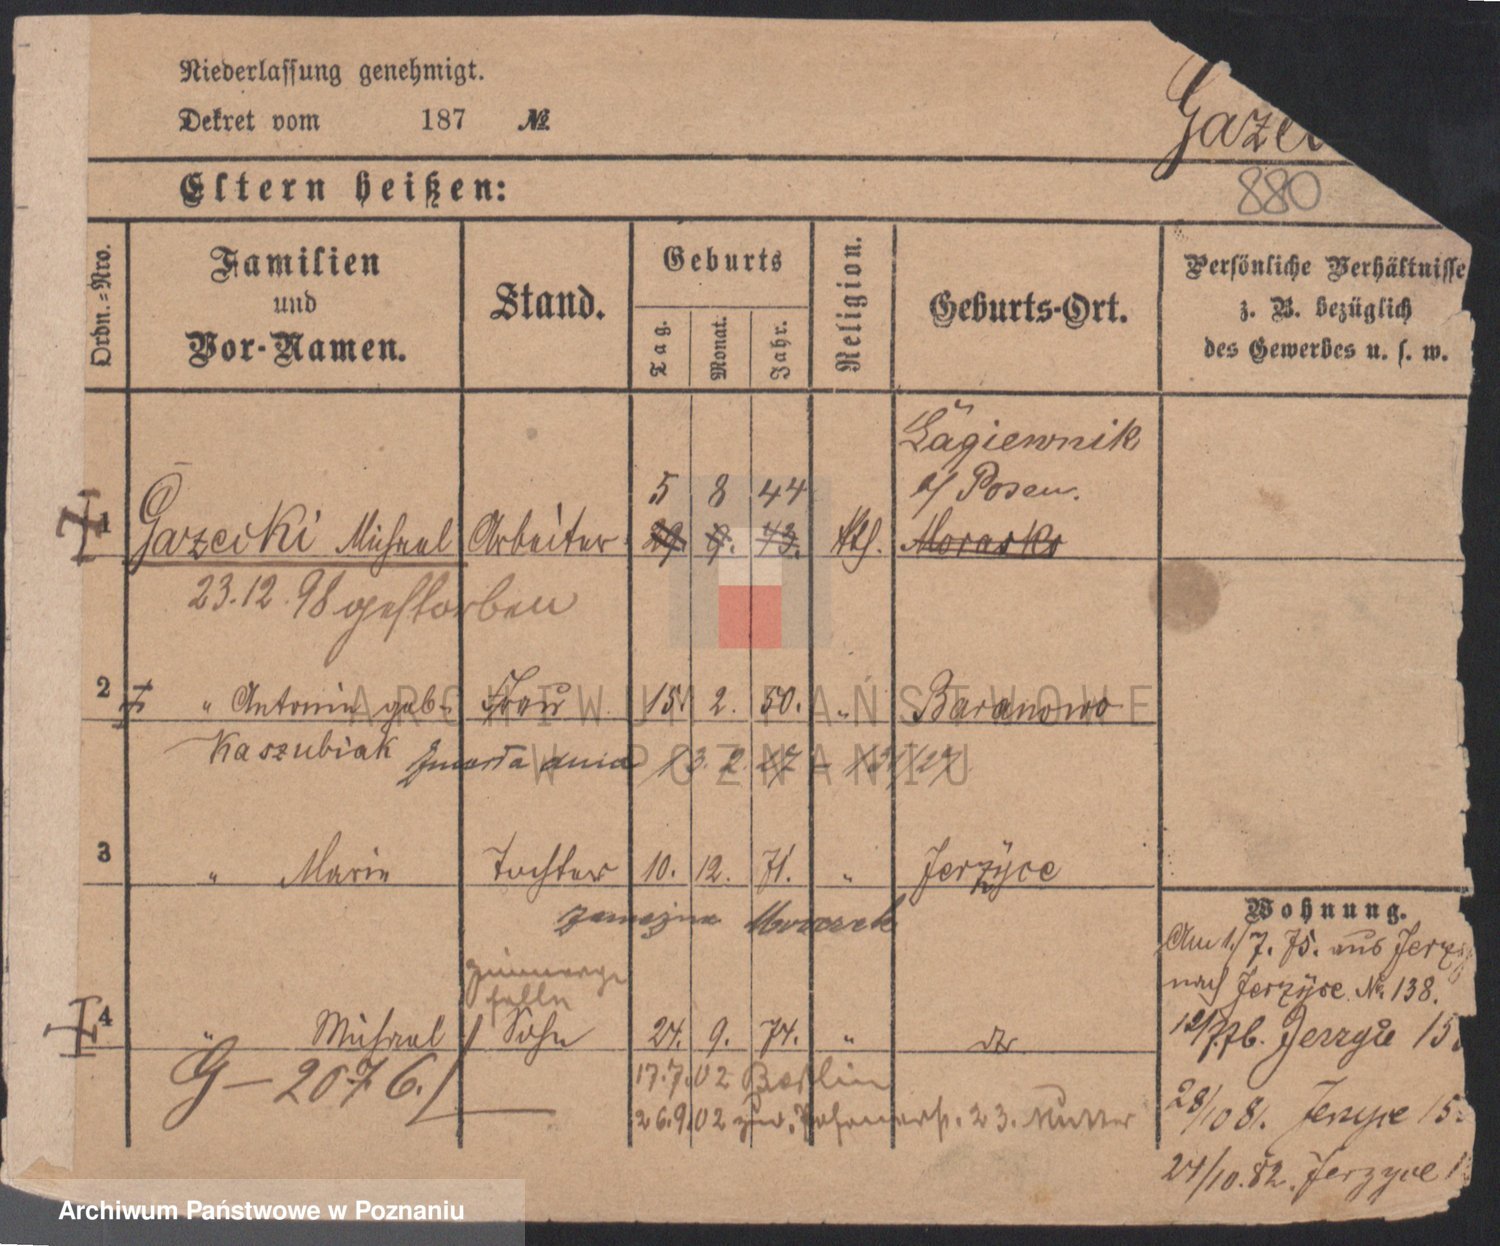 Niederlassung genehmigt.
Dekret vom 187 №
Gazec
880
Eltern heißen:
Ordn.-Nro.
Familien
und
Vor-Namen.
Stand.
Geburts
Tag.
Monat.
Jahr.
Religion.
Geburts-Ort.
Persönliche Verhältnisse
z. B. bezüglich
des Gewerbes u. s. w.
Lągiewnik
b/ Posen.
5 8 44
1 Gazecki Michael Arbeiter 29. 9. 43. kth. Morasko
23.12.98 gestorben
2 " Antonie geb. Frau 15. 2. 50. " Baranowo
Kaszubiak zmarła dnia 13.2.27 - 131/27
3 " Marie Tochter 10. 12. 71. " Jerzyce
zamężna
4 " Michael Sohn 24. 9. 74. " do
G - 2076.
17.7.02 Berlin
26.9.02 zur. 23. Mutter
Wohnung.
Am 1./7. 75. aus Jerzy
nach Jerzyce No 138.
12/7 76. Jerzyce 15
28/10 81. Jerzyce 15
24/10.82. Jerzyce 1
ARCHIWUM PAŃSTWOWE
W POZNANIU
Archiwum Państwowe w Poznaniu